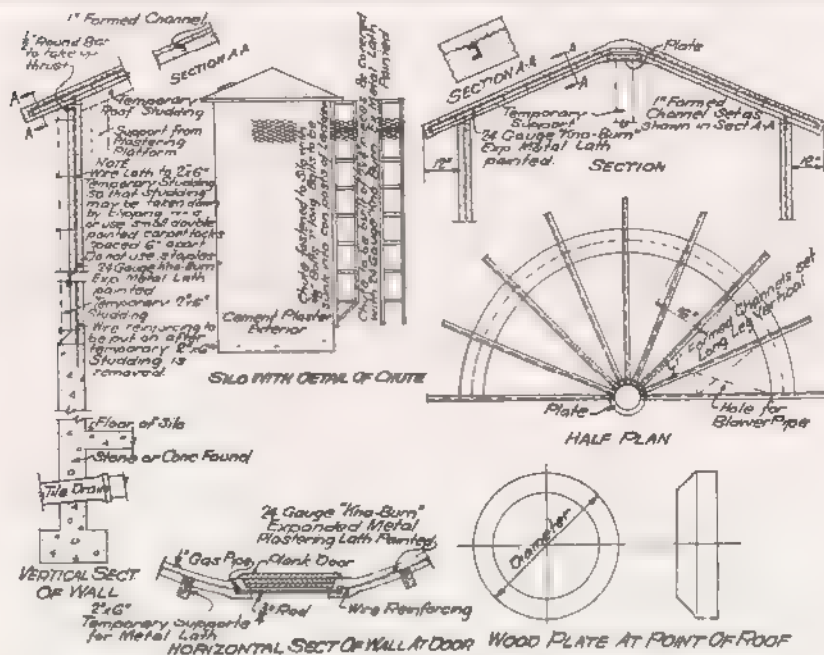 1" Formed Channel
Round Bar
to take up
thrust
SECTION A-A
A
A
Temporary
Roof Studding
Support from
Plastering
Platform
NOTE
Wire Lath to 2"x6"
Temporary Studding
so that Studding
may be taken down
by clipping
or use small double
pointed carpet tacks
spaced 6" apart
Do not use staples
24 Gauge "Kno-Burn"
Exp Metal Lath
painted
Temporary 2"x6"
Studding
Wire reinforcing to
be put on after
temporary 2"x6"
Studding is
removed.
Floor of Silo
Stone or Conc Found
Tile Drain
VERTICAL SECT.
OF WALL
Chute fastened to Silo with
Bolts long Bolts to be
sunk into con posts of Ladder
Chute to be built of 2x4 pieces & covered
with 24 Gauge "Kno Burn" Ex Metal Lath
Painted
Cement Plaster
Exterior
SILO WITH DETAIL OF CHUTE
SECTION A-A
A
A
Plate
Temporary
Support
24 Gauge "Kno-Burn"
Exp Metal Lath
painted.
1" Formed
Channel Set as
Shown in Sect A-A
12"
12"
SECTION
1" Formed Channels set
Long Leg Vertical
Plate
Hole for
Blower Pipe
HALF PLAN
24 Gauge "Kno-Burn"
Expanded Metal
Plastering Lath Painted
Gas Pipe
Plank Door
2"x6"
Temporary Supports
for Metal Lath
Rod
Wire Reinforcing
HORIZONTAL SECT OF WALL AT DOOR
Diameter
WOOD PLATE AT POINT OF ROOF